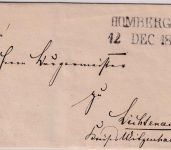 HOMBERG
12 DEC 18
Herrn Bürgermeister
zu
Lichtenau
Kreis Witzenhausen